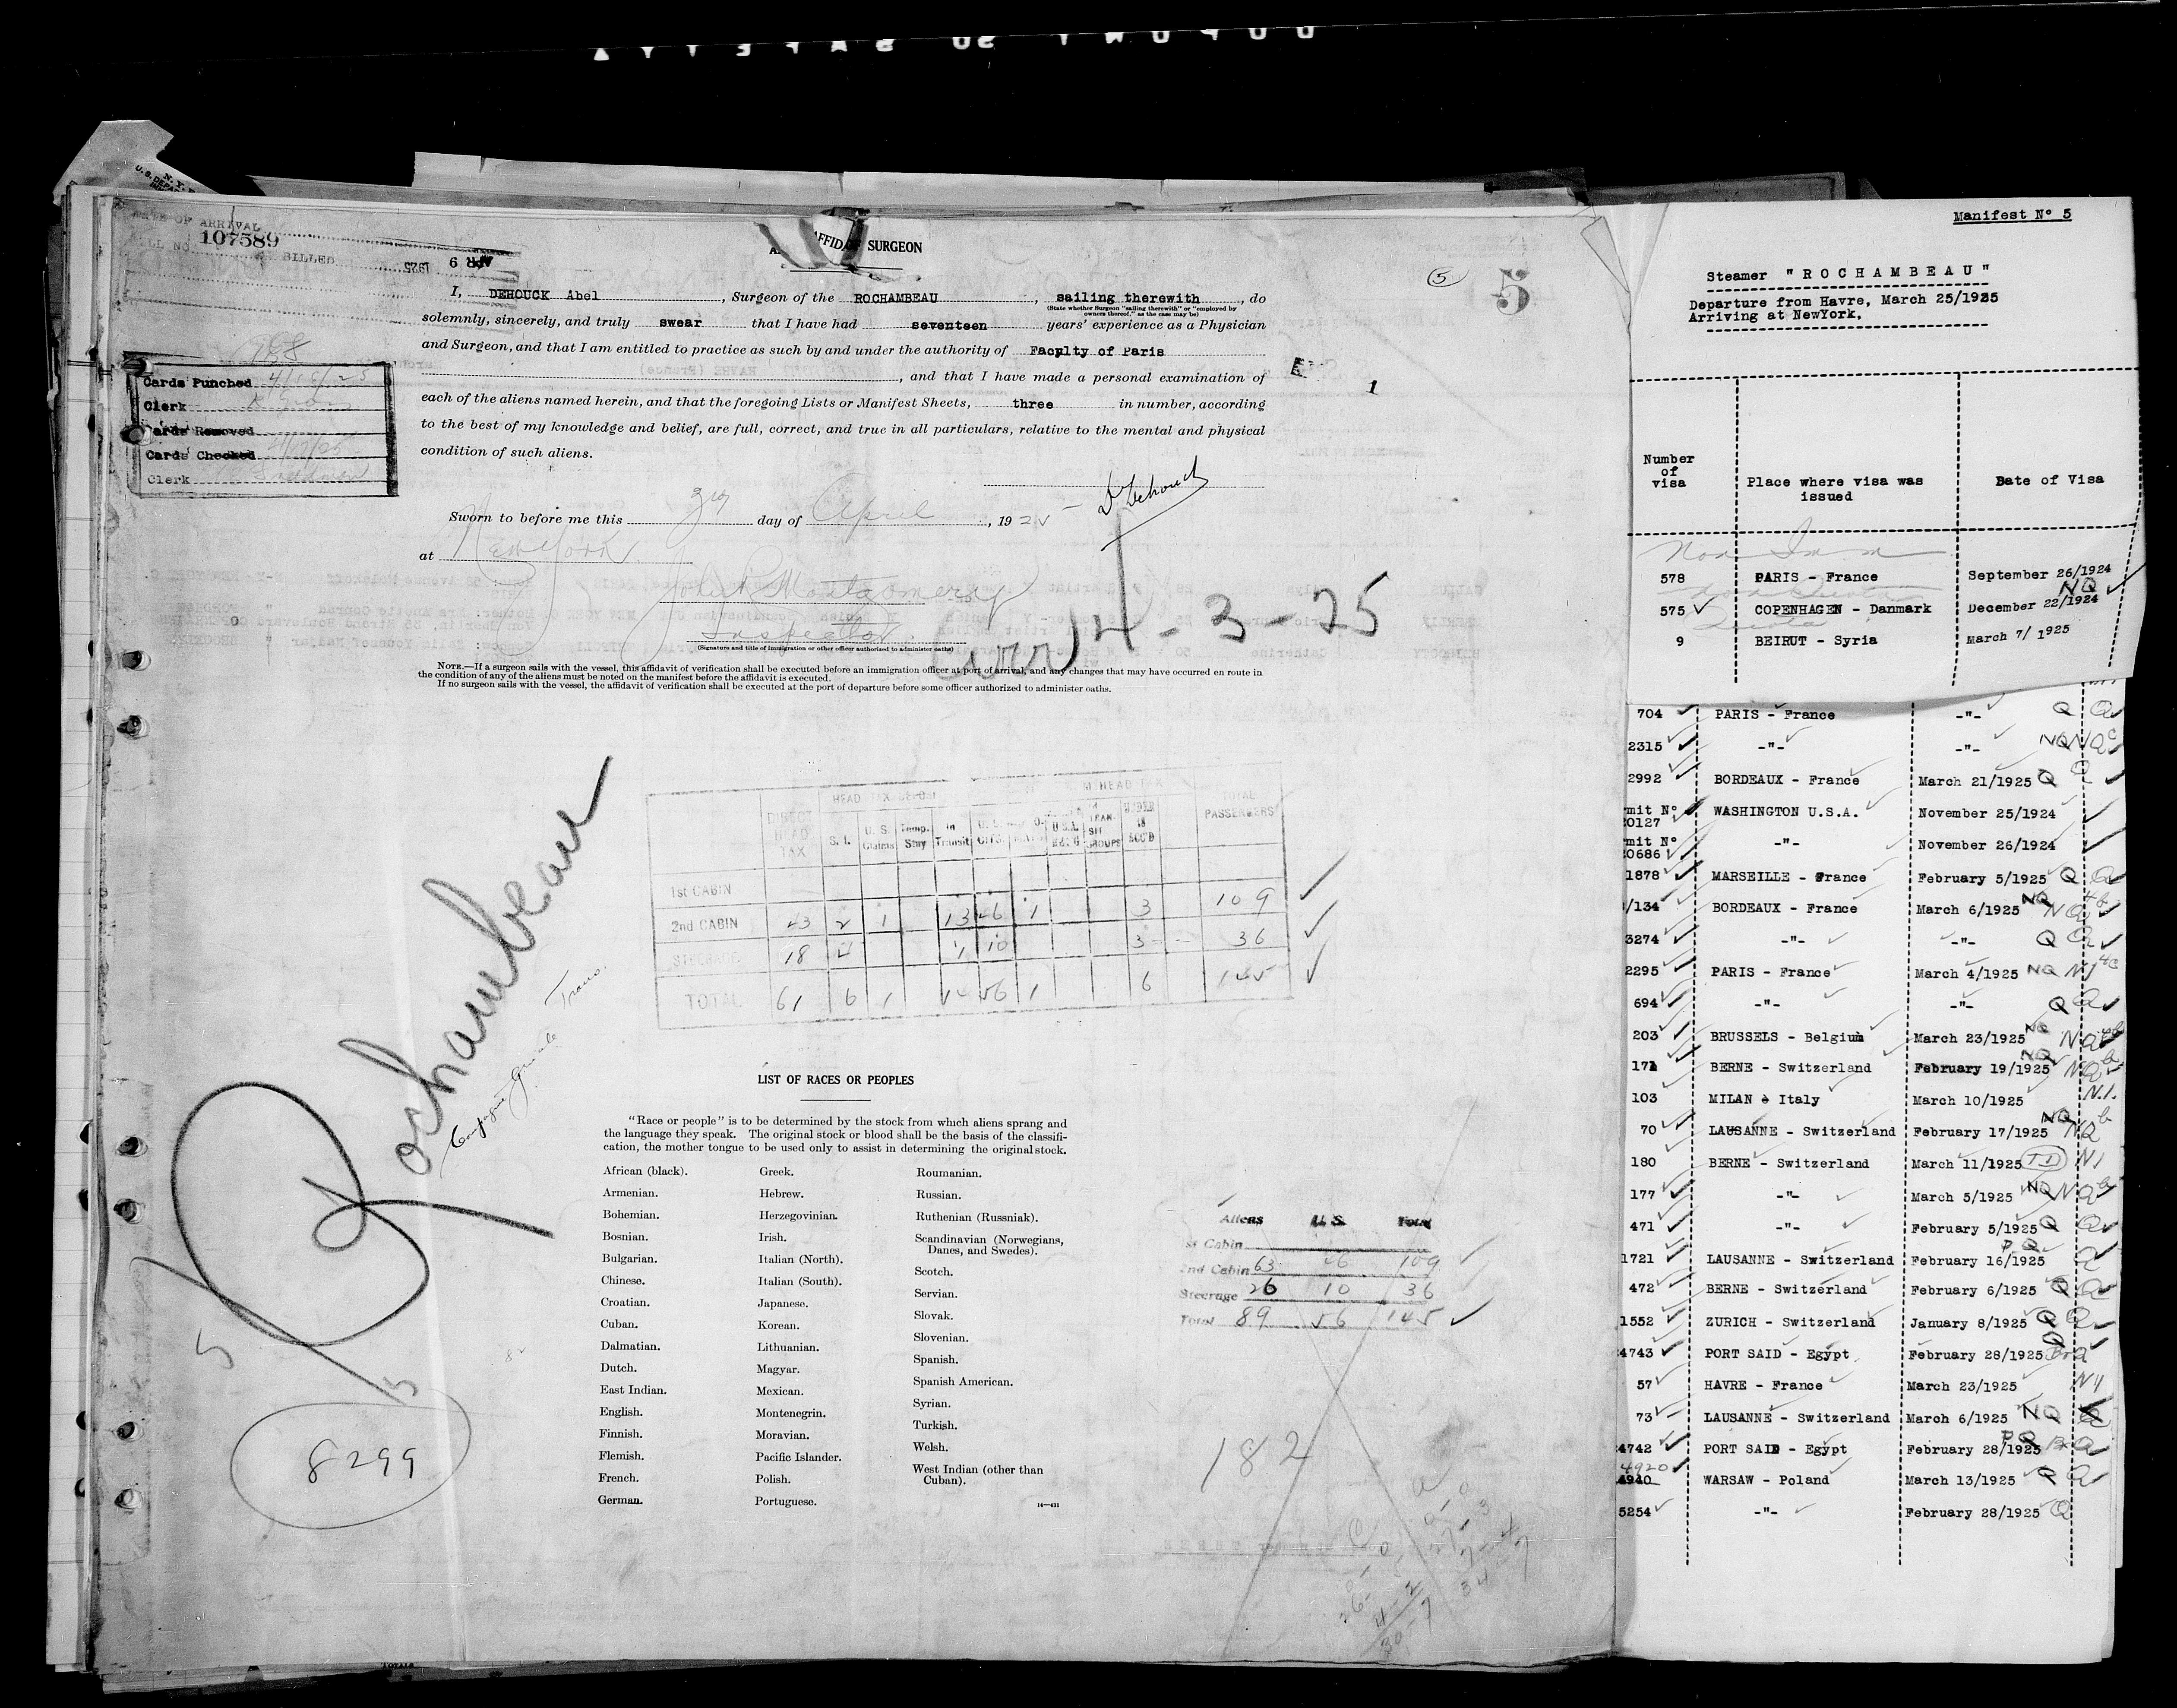 DATE OF ARRIVAL
107589
BILLED
APR 9 1925
AFFID SURGEON
5
5
I, DEHOUCK Abel, Surgeon of the ROCHAMBEAU, sailing therewith, do
(State whether Surgeon "sailing therewith" or "employed by
owners thereof," as the case may be)
solemnly, sincerely, and truly swear that I have had seventeen years' experience as a Physician
and Surgeon, and that I am entitled to practice as such by and under the authority of Faculty of Paris
, and that I have made a personal examination of
each of the aliens named herein, and that the foregoing Lists or Manifest Sheets, three in number, according
to the best of my knowledge and belief, are full, correct, and true in all particulars, relative to the mental and physical
condition of such aliens.
E
1
Cards Punched
Clerk
Cards Removed
Cards Checked
Clerk
Dr Dehouck
Sworn to before me this 3rd day of April, 1925
at New York
John R Montgomery
Inspector.
(Signature and title of immigration or other officer authorized to administer oaths)
arr 4-3-25
NOTE.—If a surgeon sails with the vessel, this affidavit of verification shall be executed before an immigration officer at port of arrival, and any changes that may have occurred en route in
the condition of any of the aliens must be noted on the manifest before the affidavit is executed.
If no surgeon sails with the vessel, the affidavit of verification shall be executed at the port of departure before some officer authorized to administer oaths.
Rochambeau
Compagnie Generale Trans.
DIRECT HEAD TAX S. I. U. S. Claims Temp. Stay In Transit U. S. CITS. UNDER 16 ACC'D TOTAL PASSENGERS
1st CABIN
2nd CABIN 43 2 1 13 46 1 3 109
STEERAGE 18 4 1 10 3 36
TOTAL 61 6 1 14 56 1 6 145
LIST OF RACES OR PEOPLES
"Race or people" is to be determined by the stock from which aliens sprang and
the language they speak. The original stock or blood shall be the basis of the classifi-
cation, the mother tongue to be used only to assist in determining the original stock.
African (black).
Armenian.
Bohemian.
Bosnian.
Bulgarian.
Chinese.
Croatian.
Cuban.
Dalmatian.
Dutch.
East Indian.
English.
Finnish.
Flemish.
French.
German.
Greek.
Hebrew.
Herzegovinian.
Irish.
Italian (North).
Italian (South).
Japanese.
Korean.
Lithuanian.
Magyar.
Mexican.
Montenegrin.
Moravian.
Pacific Islander.
Polish.
Portuguese.
Roumanian.
Russian.
Ruthenian (Russniak).
Scandinavian (Norwegians,
Danes, and Swedes).
Scotch.
Servian.
Slovak.
Slovenian.
Spanish.
Spanish American.
Syrian.
Turkish.
Welsh.
West Indian (other than
Cuban).
14—431
Aliens U. S. Total
1st Cabin
2nd Cabin 63 46 109
Steerage 26 10 36
Total 89 56 145
5
15
8299
182
Manifest N° 5
Steamer "ROCHAMBEAU"
Departure from Havre, March 25/1925
Arriving at NewYork,
Number
of
visa
Place where visa was
issued
Date of Visa
Non Imm
578 PARIS - France September 26/1924
NQ
575 COPENHAGEN - Danmark December 22/1924
Quota
9 BEIRUT - Syria March 7/1925
704 PARIS - France -"- Q Q
2315 -"- -"- NQ NQ
2992 BORDEAUX - France March 21/1925 Q Q
mit N°
20127 WASHINGTON U.S.A. November 25/1924
mit N°
20686 -"- November 26/1924
1878 MARSEILLE - France February 5/1925 Q Q
/134 BORDEAUX - France March 6/1925 NQ NQ
3274 -"- -"- Q Q
2295 PARIS - France March 4/1925 NQ
694 -"- -"- Q Q
203 BRUSSELS - Belgium March 23/1925 NQ NQ
171 BERNE - Switzerland February 19/1925 NQ NQ
103 MILAN è Italy March 10/1925 N.I.
70 LAUSANNE - Switzerland February 17/1925 NQ NQ
180 BERNE - Switzerland March 11/1925 NI
177 -"- March 5/1925 NQ NQ
471 -"- February 5/1925 Q Q
1721 LAUSANNE - Switzerland February 16/1925 PQ Q
472 BERNE - Switzerland February 6/1925 Q Q
1552 ZURICH - Switzerland January 8/1925 Q Q
4743 PORT SAID - Egypt February 28/1925
57 HAVRE - France March 23/1925
73 LAUSANNE - Switzerland March 6/1925 NQ
4742 PORT SAID - Egypt February 28/1925 PQ
4920
4940 WARSAW - Poland March 13/1925 Q Q
5254 -"- February 28/1925 Q